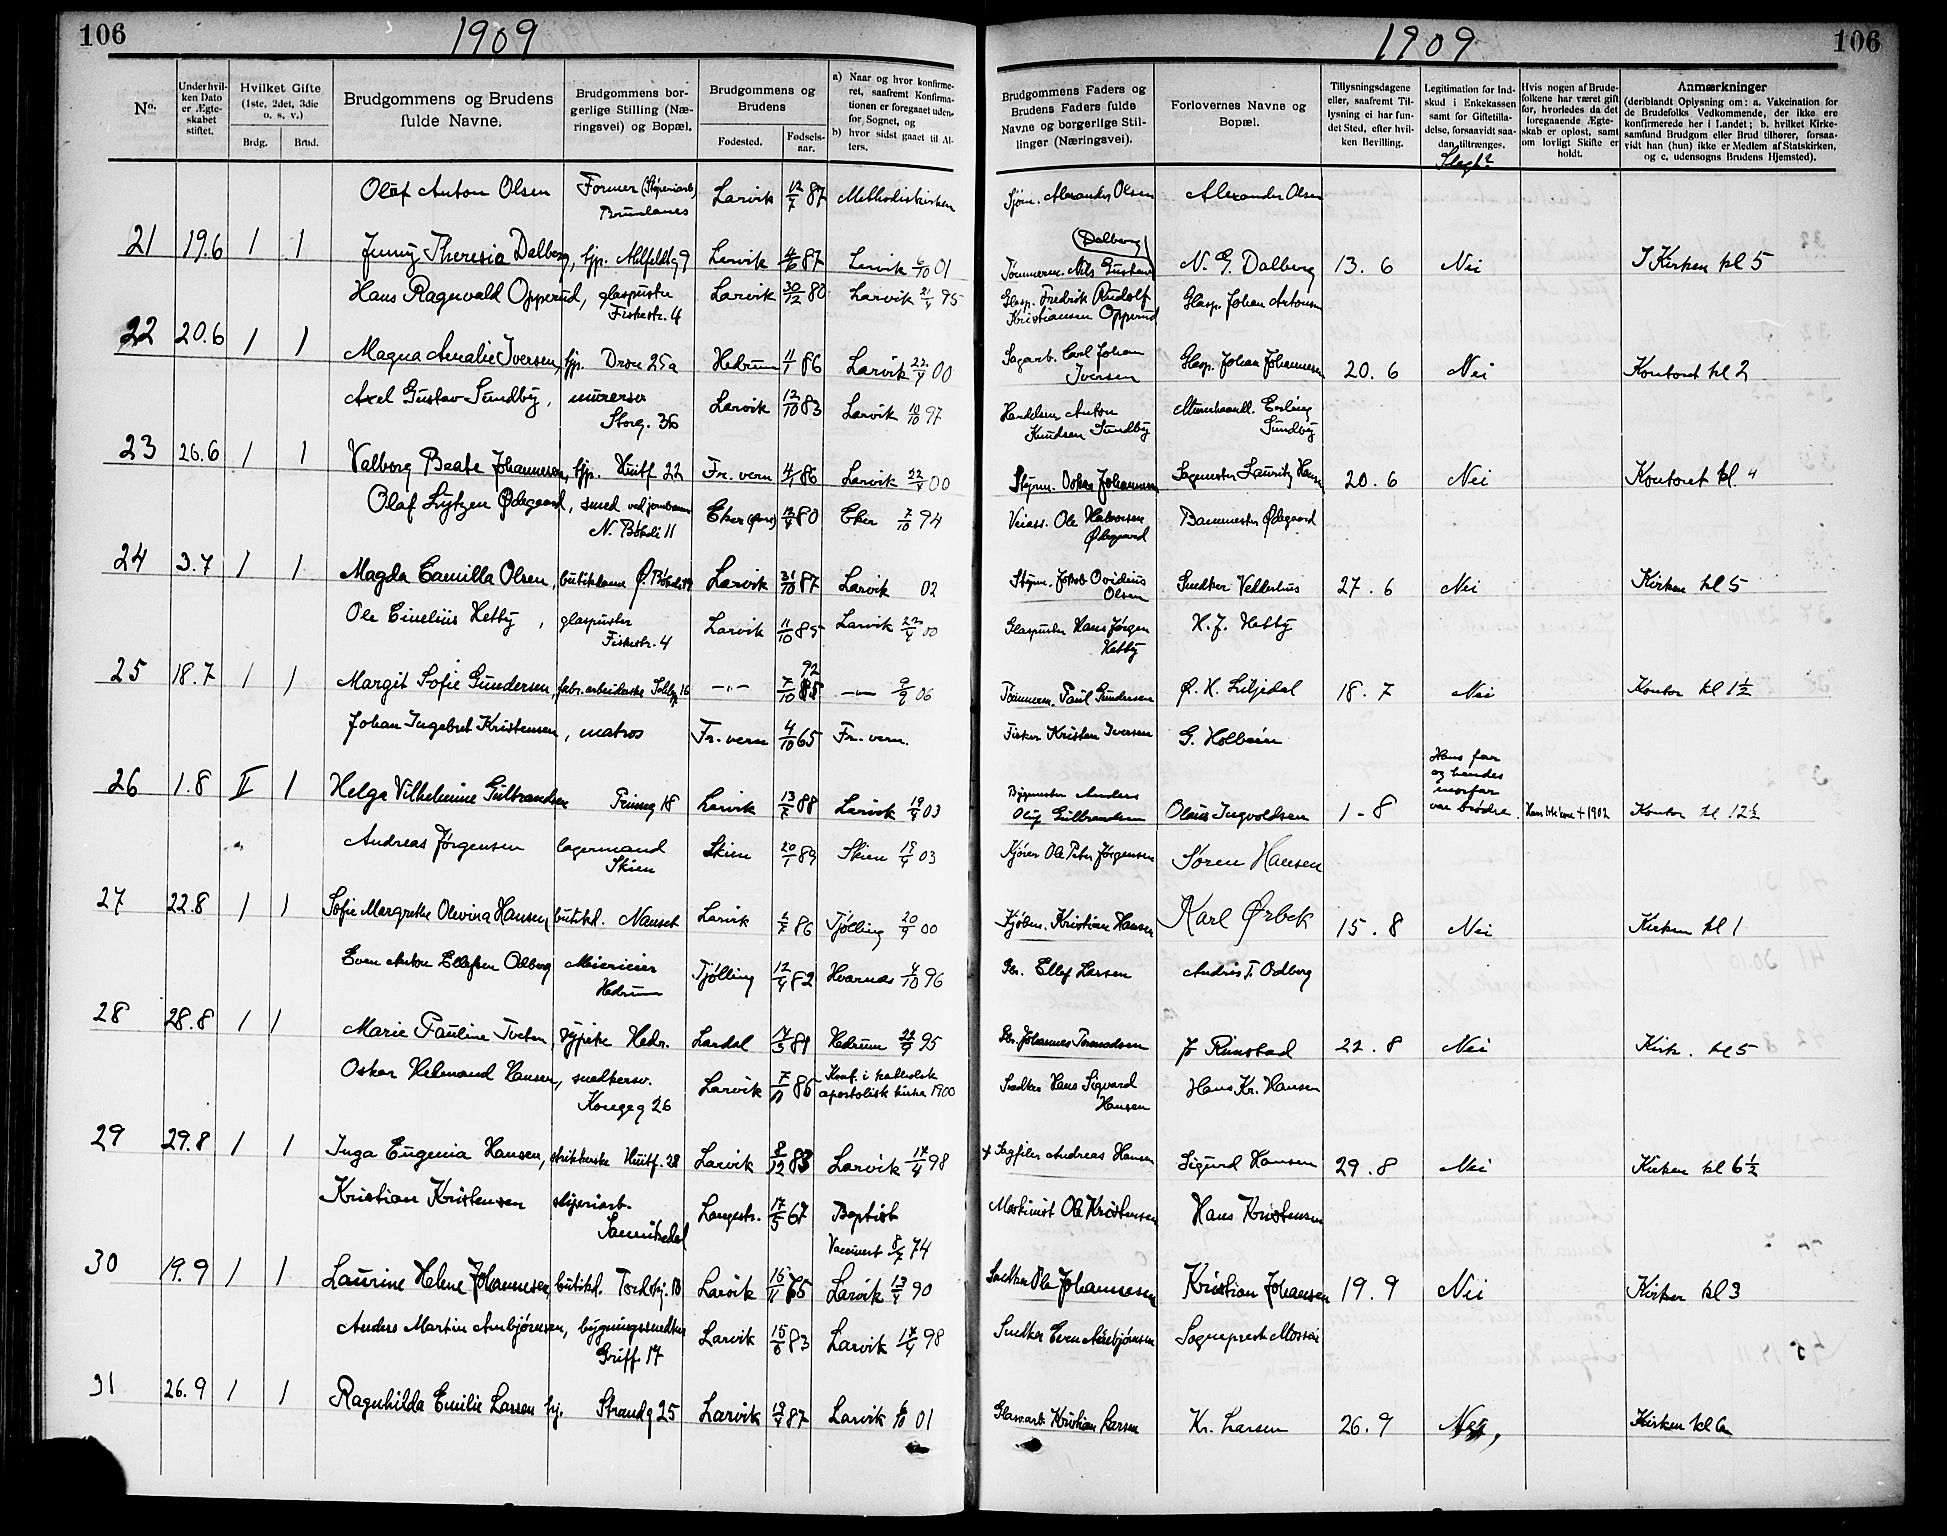 106
1909
1909
106
No.
Under hvil-
ken Dato
er Ægte-
skabet
stiftet.
Hvilket Gifte
(1ste, 2det, 3die
o. s. v.)
Brdg.
Brud.
Brudgommens og Brudens
fulde Navne.
Brudgommens bor-
gerlige Stilling (Næ-
ringsvei) og Bopæl.
Brudgommens og
Brudens
Fødested.
Fødsels-
aar.
a) Naar og hvor konfirme-
ret, saafremt Konfirma-
tionen er foregaaet uden-
for Sognet, og
b) hvor sidst gaaet til Al-
ters.
Brudgommens Faders og
Brudens Faders fulde
Navne og borgerlige Stil-
linger (Næringsvei).
Forlovernes Navne og
Bopæl.
Tillysningsdagene
eller, saafremt Til-
lysning ei har fun-
det Sted, efter hvil-
ken Bevilling.
Legitimation for Ind-
skud i Enkekassen
samt for Giftetilla-
delse, forsaavidt saa-
dan tiltrænges.
Slegt?
Hvis nogen af Brude-
folkene har været gift
før, hvorledes da det
foregaaende Ægte-
skab er opløst, samt
om lovligt Skifte er
holdt.
Anmærkninger
(deriblandt Oplysning om: a. Vakcination for
de Brudefolks Vedkommende, der ikke ere
konfirmerede her i Landet; b. hvilket Kirke-
samfund Brudgom eller Brud tilhører, forsaa-
vidt han (hun) ikke er Medlem af Statskirken,
og c, udensogns Brudens Hjemsted).
Olaf Anton Olsen Former (Støperiarb.) Brunlanes Larvik 12/7 87 Methodistkirken Sjøm. Alexander Olsen Alexander Olsen
21 19.6 1 1 Jenny Theresia Dalberg, hjp. Ahlfeldtg 9 Larvik 4/6 87 Larvik 6/10 01 Tømmerm. Nils Gustav (Dalberg) N. G. Dalberg 13.6 Nei I Kirken kl 5
Hans Ragnvald Opperud, glaspuster Fiskestr. 4 Larvik 30/12 80 Larvik 21/4 95 Glasp. Fredrik Rudolf Kristiansen Opperud Glasp. Johan Antonsen
22 20.6 1 1 Magna Amalie Iversen, hjp. Dron 25a Hedrum 11/1 86 Larvik 22/4 00 Sagarb. Carl Johan Iversen Glasp. Johan Johannesen 20.6 Nei Kontoret kl 2
Axel Gustav Sundby, murersv Storg. 36 Larvik 12/10 83 Larvik 10/10 97 Handelsm Anton Knudsen Sundby Erling Sundby
23 26.6 1 1 Valborg Beate Johannesen, hjp. Huitf 22 Fr. vern 4/1 86 Larvik 22/4 00 Styrm. Johannesen Sagmester Lauritz Hansen 20.6 Nei Kontoret kl 4
Olaf Lytzen Ødegaard, smed ved jernbanen N. Bøkeli 11 Eker (Øvre) 80 Eker 7/10 94 Veiass. Ole Halvorsen Ødegaard Banemester Ødegaard
24 3.7 1 1 Magda Camilla Olsen, butikdame Ø. Bøkeli 19 Larvik 31/10 87 Larvik 02 Styrm. Jakob Ovidius Olsen Snedker Vedderhus 27.6 Nei Kirken kl 5
Ole Emelius Hetby, glaspuster Fiskestr. 4 Larvik 11/10 85 Larvik 22/4 00 Glaspuster Hans Jørgen Hetby H. J. Hetby
25 18.7 1 1 Margit Sofie Gundersen, fabr. arbeiderske 16 —„— 7/10 92 —„— 9/9 06 Tømmerm. Paul Gundersen Ø. H. Liljedal 18.7 Nei Kontor kl 1½
Johan Ingebret Kristensen, matros Fr. vern 4/10 65 Fr. vern. Fisker Kristen Iversen G. Holbein
26 1.8 II 1 Helga Vilhelmine Gulbrandsen Prinseg 18 Larvik 13/7 88 Larvik 19/4 03 Bygmester Anders Oluf Gulbrandsen Olaus Ingvoldsen 1-8 Hans far og hendes morfar var brødre. Hans 1ste kone + 1902 Kontor kl 12½
Andreas Jørgensen lagermand Skien Skien 20/1 89 Skien 19/4 03 Kjører Ole Peter Jørgensen Søren Hansen
27 22.8 1 1 Sofie Margrethe Olevina Hansen, butikd. Nanset Larvik 6/7 86 Tjølling 20/9 00 Kjøbm. Kristian Hansen Karl Ørbek 15.8 Nei Kirken kl 1
Even Anton Ellefsen Odberg Meierieier Hedrum Tjølling 12/4 82 Hvarnes 4/10 96 Gbr. Ellef Larsen Andris T. Odberg
28 28.8 1 1 Marie Pauline Tveten, sypike Hedr. Lardal 81 Hedrum 22/9 95 Gbr. Johannes Tormodsen J Rimstad 22.8 Nei Kirk. kl 5
Oskar Helmand Hansen, snedkersv. Kongeg 26 Larvik 86 Konf. i katholsk apostolisk kirke 1900 Snedker Hans Sigvard Hansen Hans Kr. Hansen
29 29.8 1 1 Inga Eugenia Hansen, strikkerske Huitf. 28 Larvik 8/12 83 Larvik 17/4 98 + Sagfiler Andreas Hansen Sigurd Hansen 29.8 Nei Kirken kl 6½
Kristian Kristensen støperiarb. Sannikedal Langestr. 17/5 67 Baptist Vaccinert 8/7 74 Maskinist Ole Kristensen Hans Kristensen
30 19.9 1 1 Laurine Helene Johannesen, butikd. Torshj. 18 Larvik 16/11 75 Larvik 13/4 90 Snedker Ole Johannesen Kristian Johansen 19.9 Nei Kirken kl 3
Anders Martin Arnbjørnsen, bygningssnedker Griff. 17 Larvik 15/6 83 Larvik 17/4 98 Snedker Even Arnbjørnsen Sogneprest Mossin
31 26.9 1 1 Ragnhilda Emilie Larsen hj. Strandg 25 Larvik 87 Larvik 6/10 01 Glassarb Kristian Larsen Kr. Larsen 26.9 Nei, Kirken kl 6